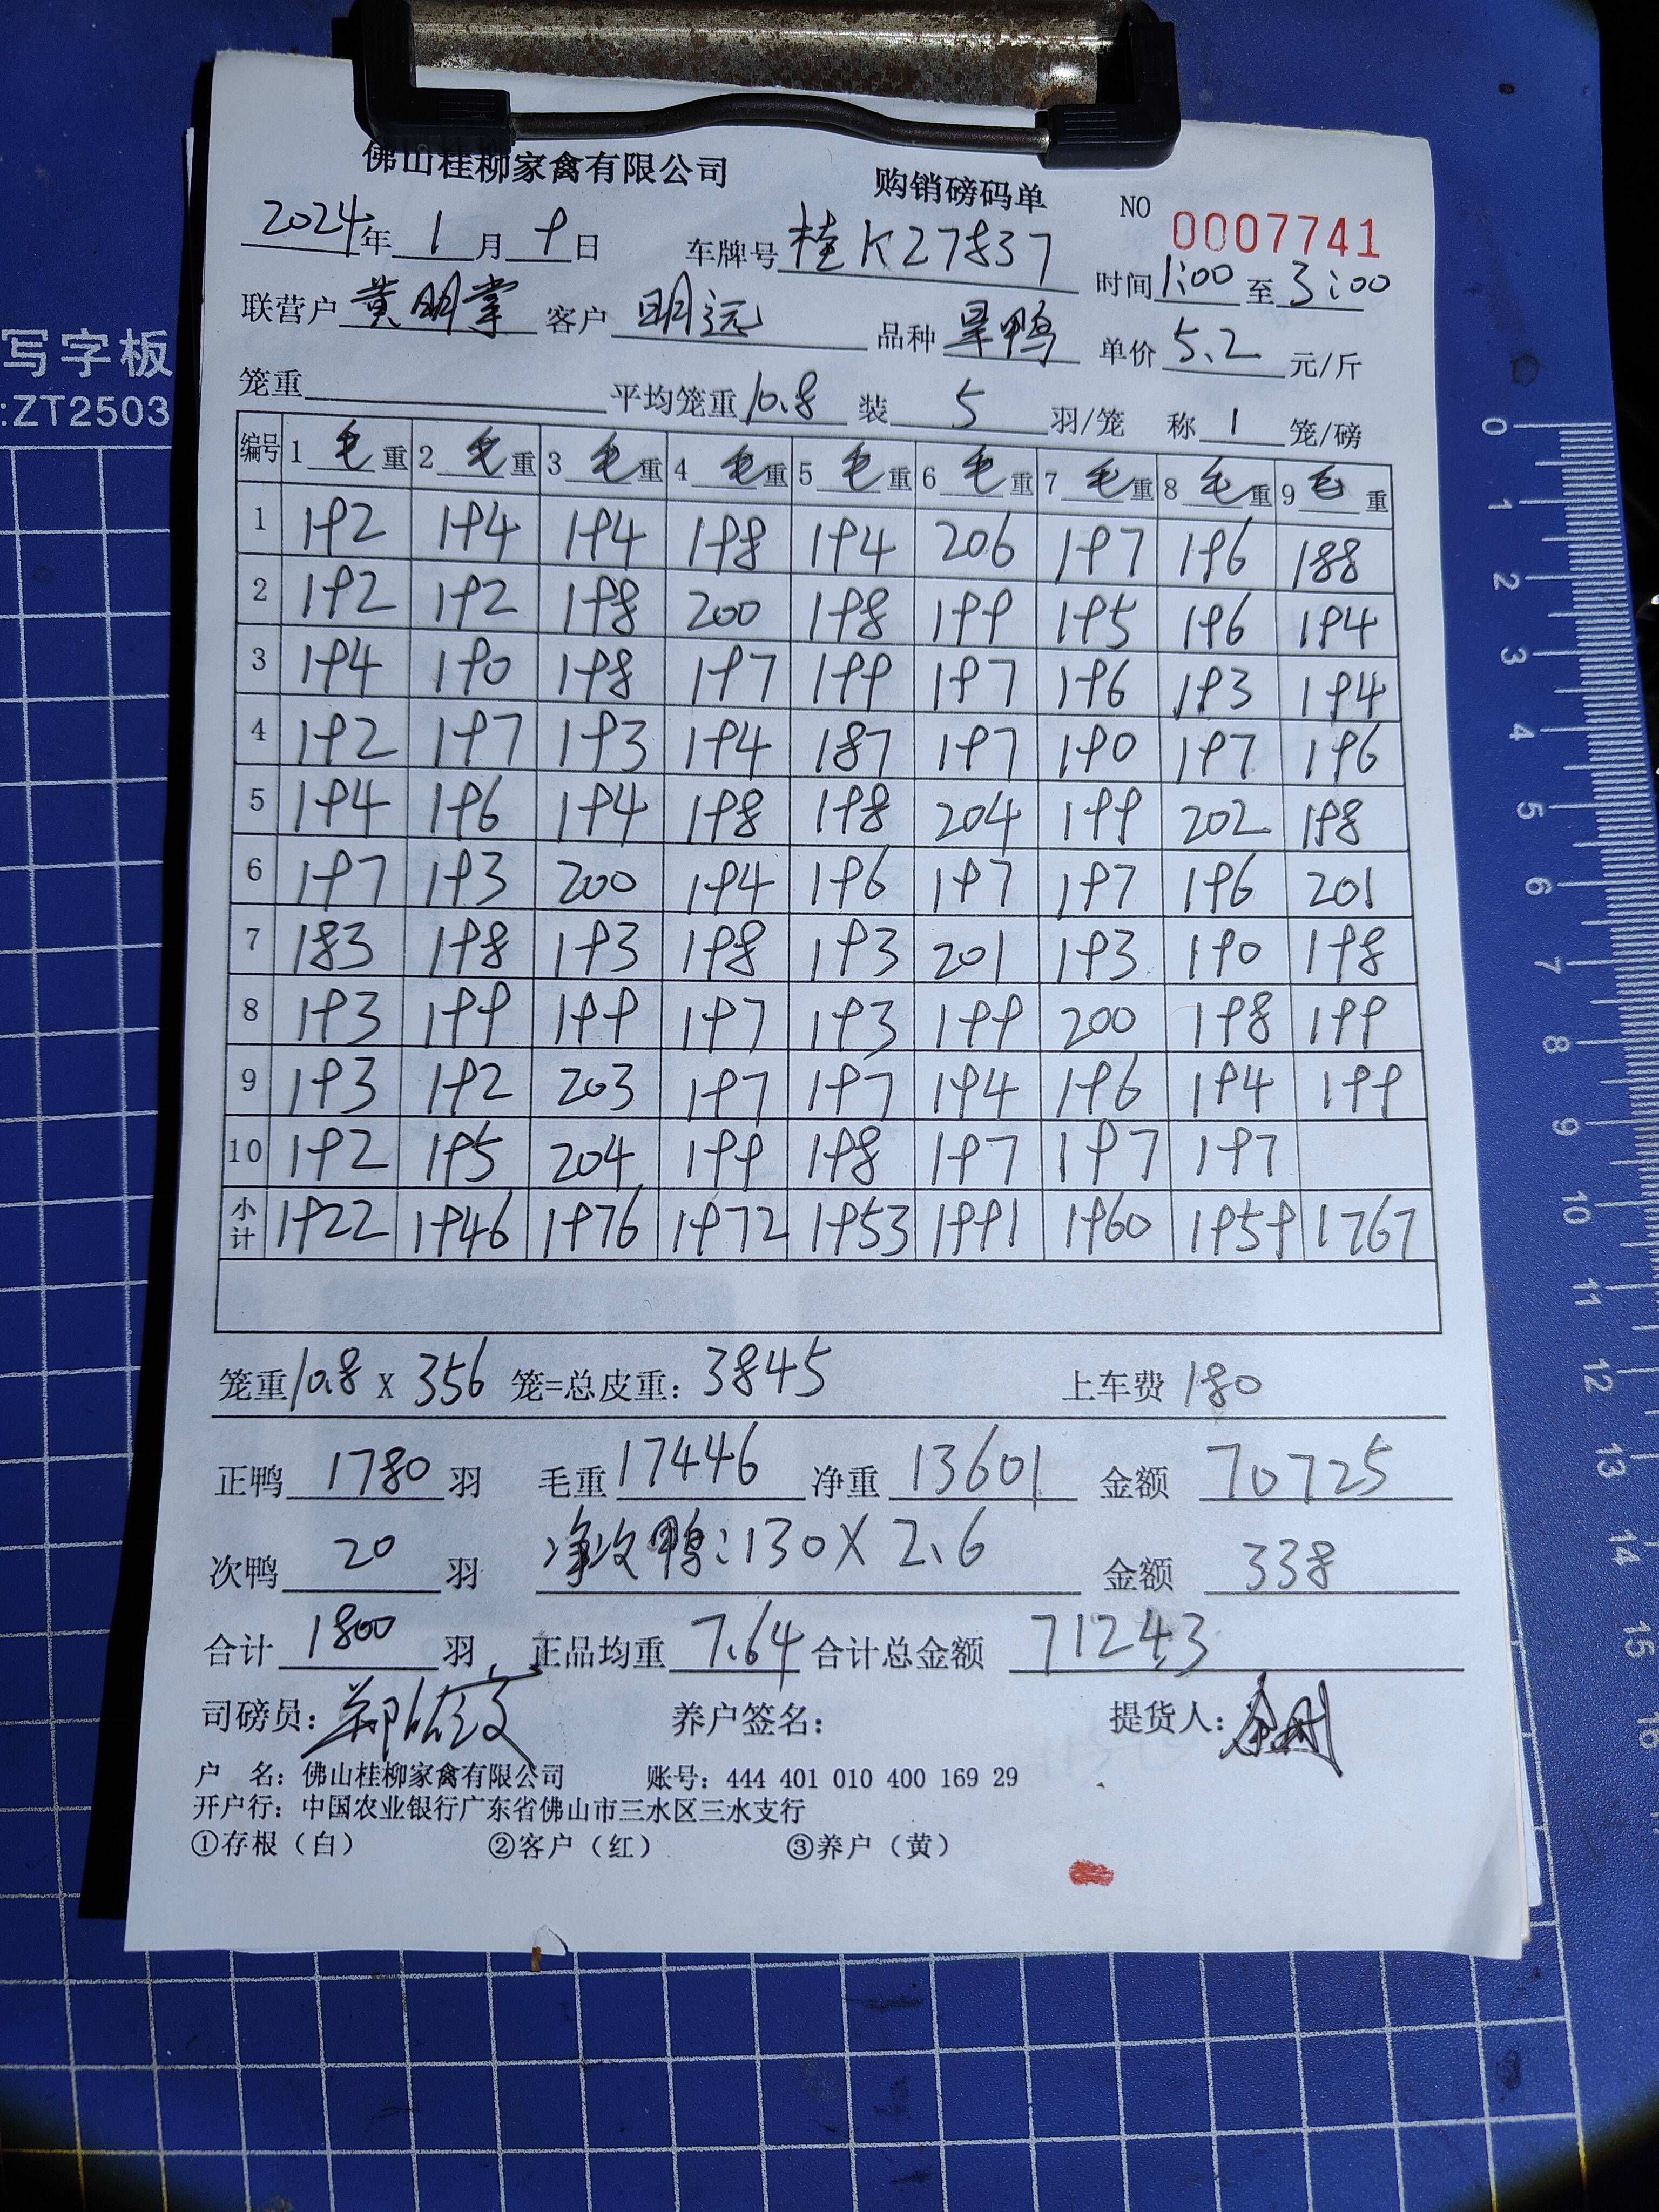 写字板
:ZT2503
佛山桂柳家禽有限公司 购销磅码单 NO 0007741
2024年 1月 9日 车牌号 桂K27837 时间 1:00 至 3:00
联营户 黄明掌 客户 明远 品种 旱鸭 单价 5.2 元/斤
笼重 平均笼重 10.8 装 5 羽/笼 称 1 笼/磅
编号 1 毛 重 2 毛 重 3 毛 重 4 毛 重 5 毛 重 6 毛 重 7 毛 重 8 毛 重 9 毛 重
1 192 194 194 198 194 206 197 196 188
2 192 192 198 200 198 199 195 196 194
3 194 190 198 197 199 197 196 193 194
4 192 197 193 194 187 197 190 197 196
5 194 196 194 198 198 204 199 202 198
6 197 193 200 194 196 197 197 196 201
7 183 198 193 198 193 201 193 190 198
8 193 199 199 197 193 199 200 198 199
9 193 192 203 197 197 194 196 194 199
10 192 195 204 199 198 197 197 197
小计 1922 1946 1976 1972 1953 1991 1960 1959 1767
笼重 10.8 X 356 笼=总皮重: 3845 上车费 180
正鸭 1780 羽 毛重 17446 净重 13601 金额 70725
次鸭 20 羽 净次鸭:130X2.6 金额 338
合计 1800 羽 正品均重 7.64 合计总金额 71243
司磅员: 养户签名: 提货人:
户 名: 佛山桂柳家禽有限公司 账号: 444 401 010 400 169 29
开户行: 中国农业银行广东省佛山市三水区三水支行
①存根（白） ②客户（红） ③养户（黄）
0
1
2
3
4
5
6
7
8
9
10
11
12
13
14
15
16